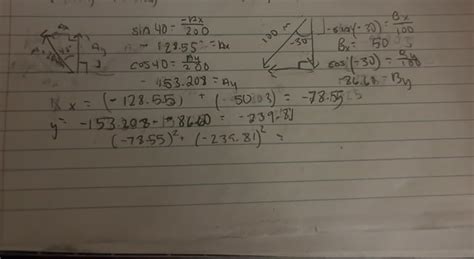 Ax
Ay
sin 40 = -Ax/200
-128.55 = Ax
cos 40 = Ay/200
-153.208 = Ay
100
-30°
-sin(-30) = Bx/100
Bx = 50
cos(-30) = By/100
-86.60 = By
x = (-128.55) + (-50) = -78.55
y = -153.208 - 86.60 = -239.81
(-78.55)² + (-239.81)² =